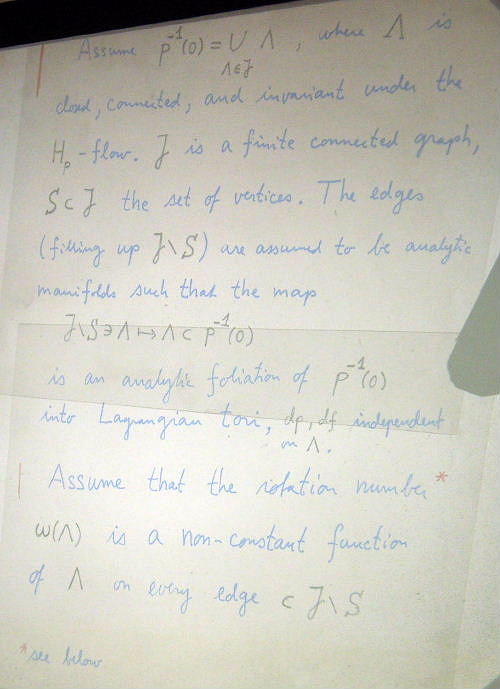 Assume p⁻¹(0) = ∪ Λ, where Λ is
Λ∈J
closed, connected, and invariant under the
Hₚ-flow. J is a finite connected graph,
S⊂J the set of vertices. The edges
(filling up J\S) are assumed to be analytic
manifolds such that the map
J\S∋Λ↦Λ⊂p⁻¹(0)
is an analytic foliation of p⁻¹(0)
into Lagrangian tori, dp, df independent
on Λ.
Assume that the rotation number*
ω(Λ) is a non-constant function
of Λ on every edge ⊂ J\S
*see below